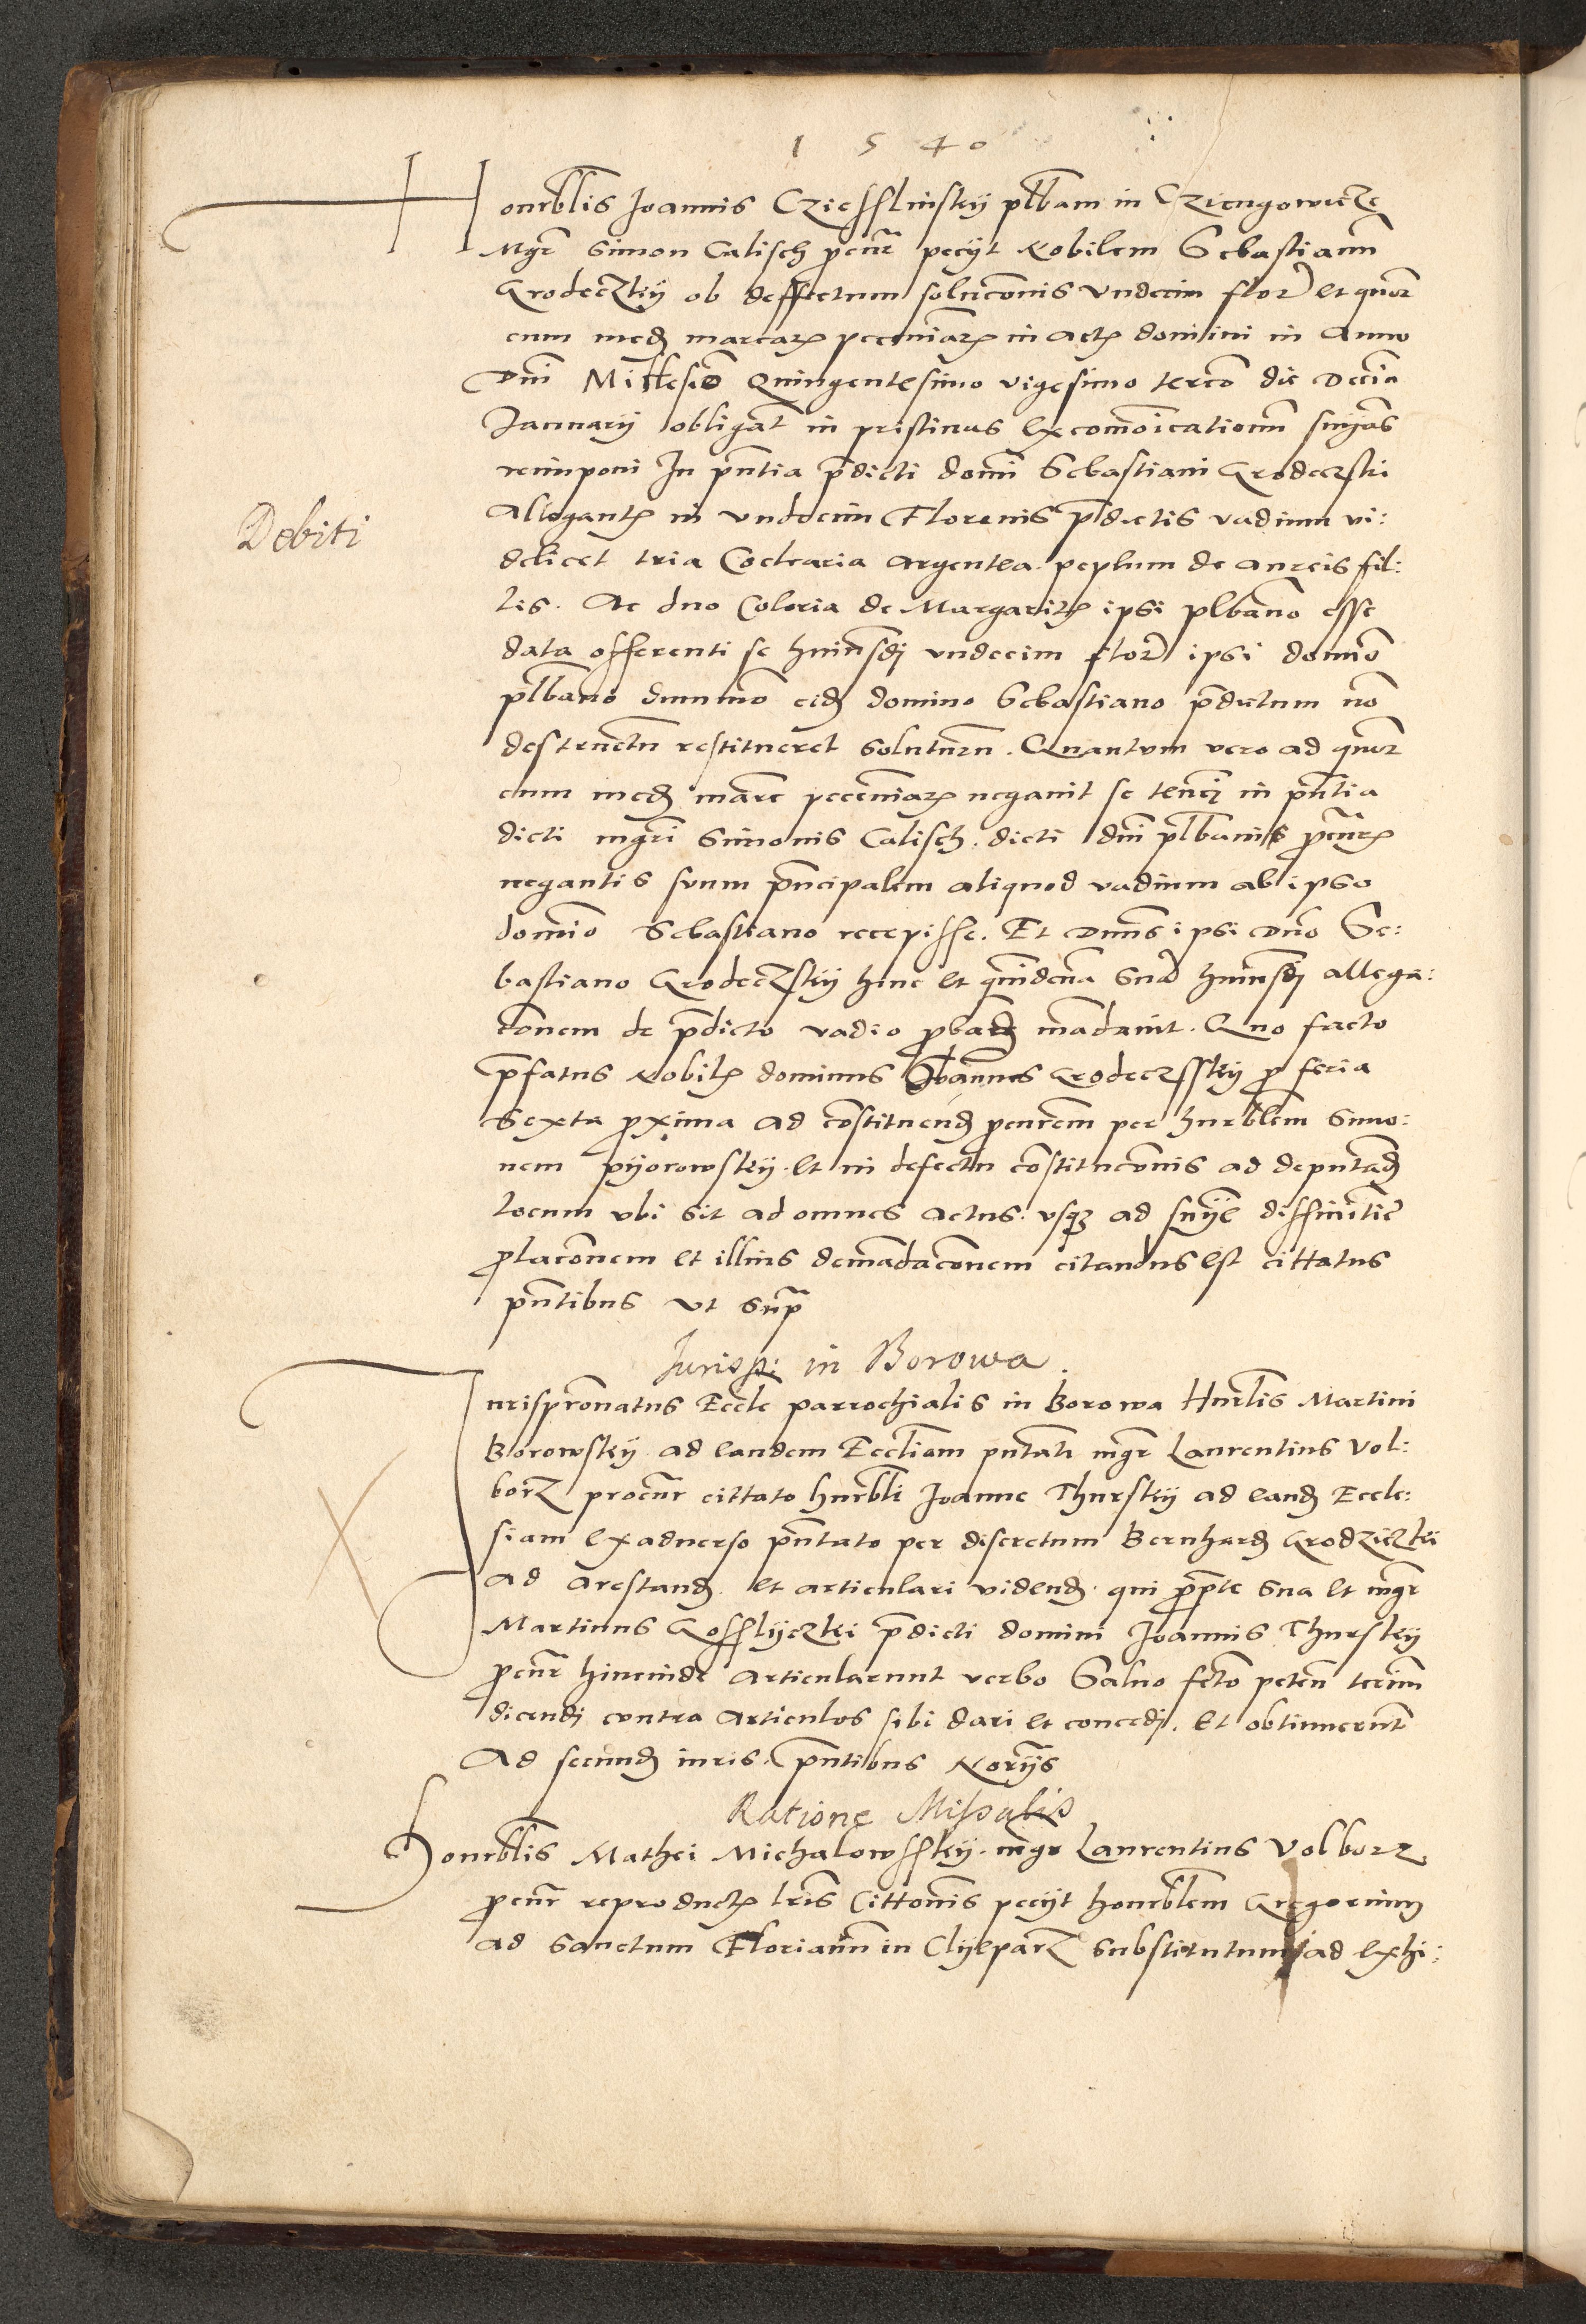 1540
Honrblis Joannis Czieſſlinſky plbani in Cziengowicze
Mgr Simon Caliſch pcur pecyt Nobilem Sebastianu
Grodeczky ob deffectum solucionis vndecim flor et quor
cum med marcarz pecuniarz in actz domini in Anno
Dni Millesio Quingentesimo vigesimo tercio die Decia
Januarij obligat in pristinas excomoicationu snias
reimponi In pntia pdicti domi Sebastiani Grodeczki
Allegantz in vndecim Florenis pdictis vadium vi:
delicet tria Coclearia Argentea peplum de aureis fil:
lis. Ac duo Coloria de Margaritz ipsi plbano esse
data offerenti se huiusdj vndecim flor ipsi domio
plbano dummo eid domino Sebastiano pdictum no
destructu restitueret soluturu. Quantum vero ad quor
cum med marc pecuniarz negauit se tenerj in pntia
dicti mgri Simonis Caliſch. dicti dni plbanis pcurz
negantis suum pncipalem aliquod vadium ab ipso
domio Sebastiano recepisse. Et Dnus ipsi Dno Se:
bastiano Grodeczsky hinc et quindena sua huiusdj allega:
cionem de pdicto vadio pband madauit. Quo facto
pfatus Nobilz dominus Joannes Grodeczſſky p feria
Sexta pxima ad constituend pcurem per hnrblem Simo:
nem pyorowsky. et in defectu constitucionis ad deputad
locum vbi sit ad omnes actus. vsqz ad snie diffinitie
placionem et illius demadacionem citandus est cittatus
pntibus vt supra
Jurisp: in Borowa
Jurispronatus Eccle parrochialis in Borowa Hnrblis Martini
Borowsky ad eandem Eccliam pntati mgr Laurentius Vol:
borz procur cittato hnrbli Joanne Thursky ad eand Eccle:
siam ex aduerso pntato per discretum Bernhard Grodziczki
ad arestand. et articulari vidend. qui ppte sua et mgr
Martinus Goſſlyczki pdicti domini Joannis Thursky
pcur hincinde articularunt verbo Saluo fcto peten terim
dicendj contra articulos sibi dari et concedj. et obtinuerut
Ad secund iuris. pntibus Norijs
Debiti
Ratione Missalis
Honrblis Mathei Michalowſſky. mgr Laurentius Volborz
pcur reproductz lris Cittonis pecyt honrblem Gregorium
ad Sanctum Florianu in Clyeparz Substitutum ad exhi: